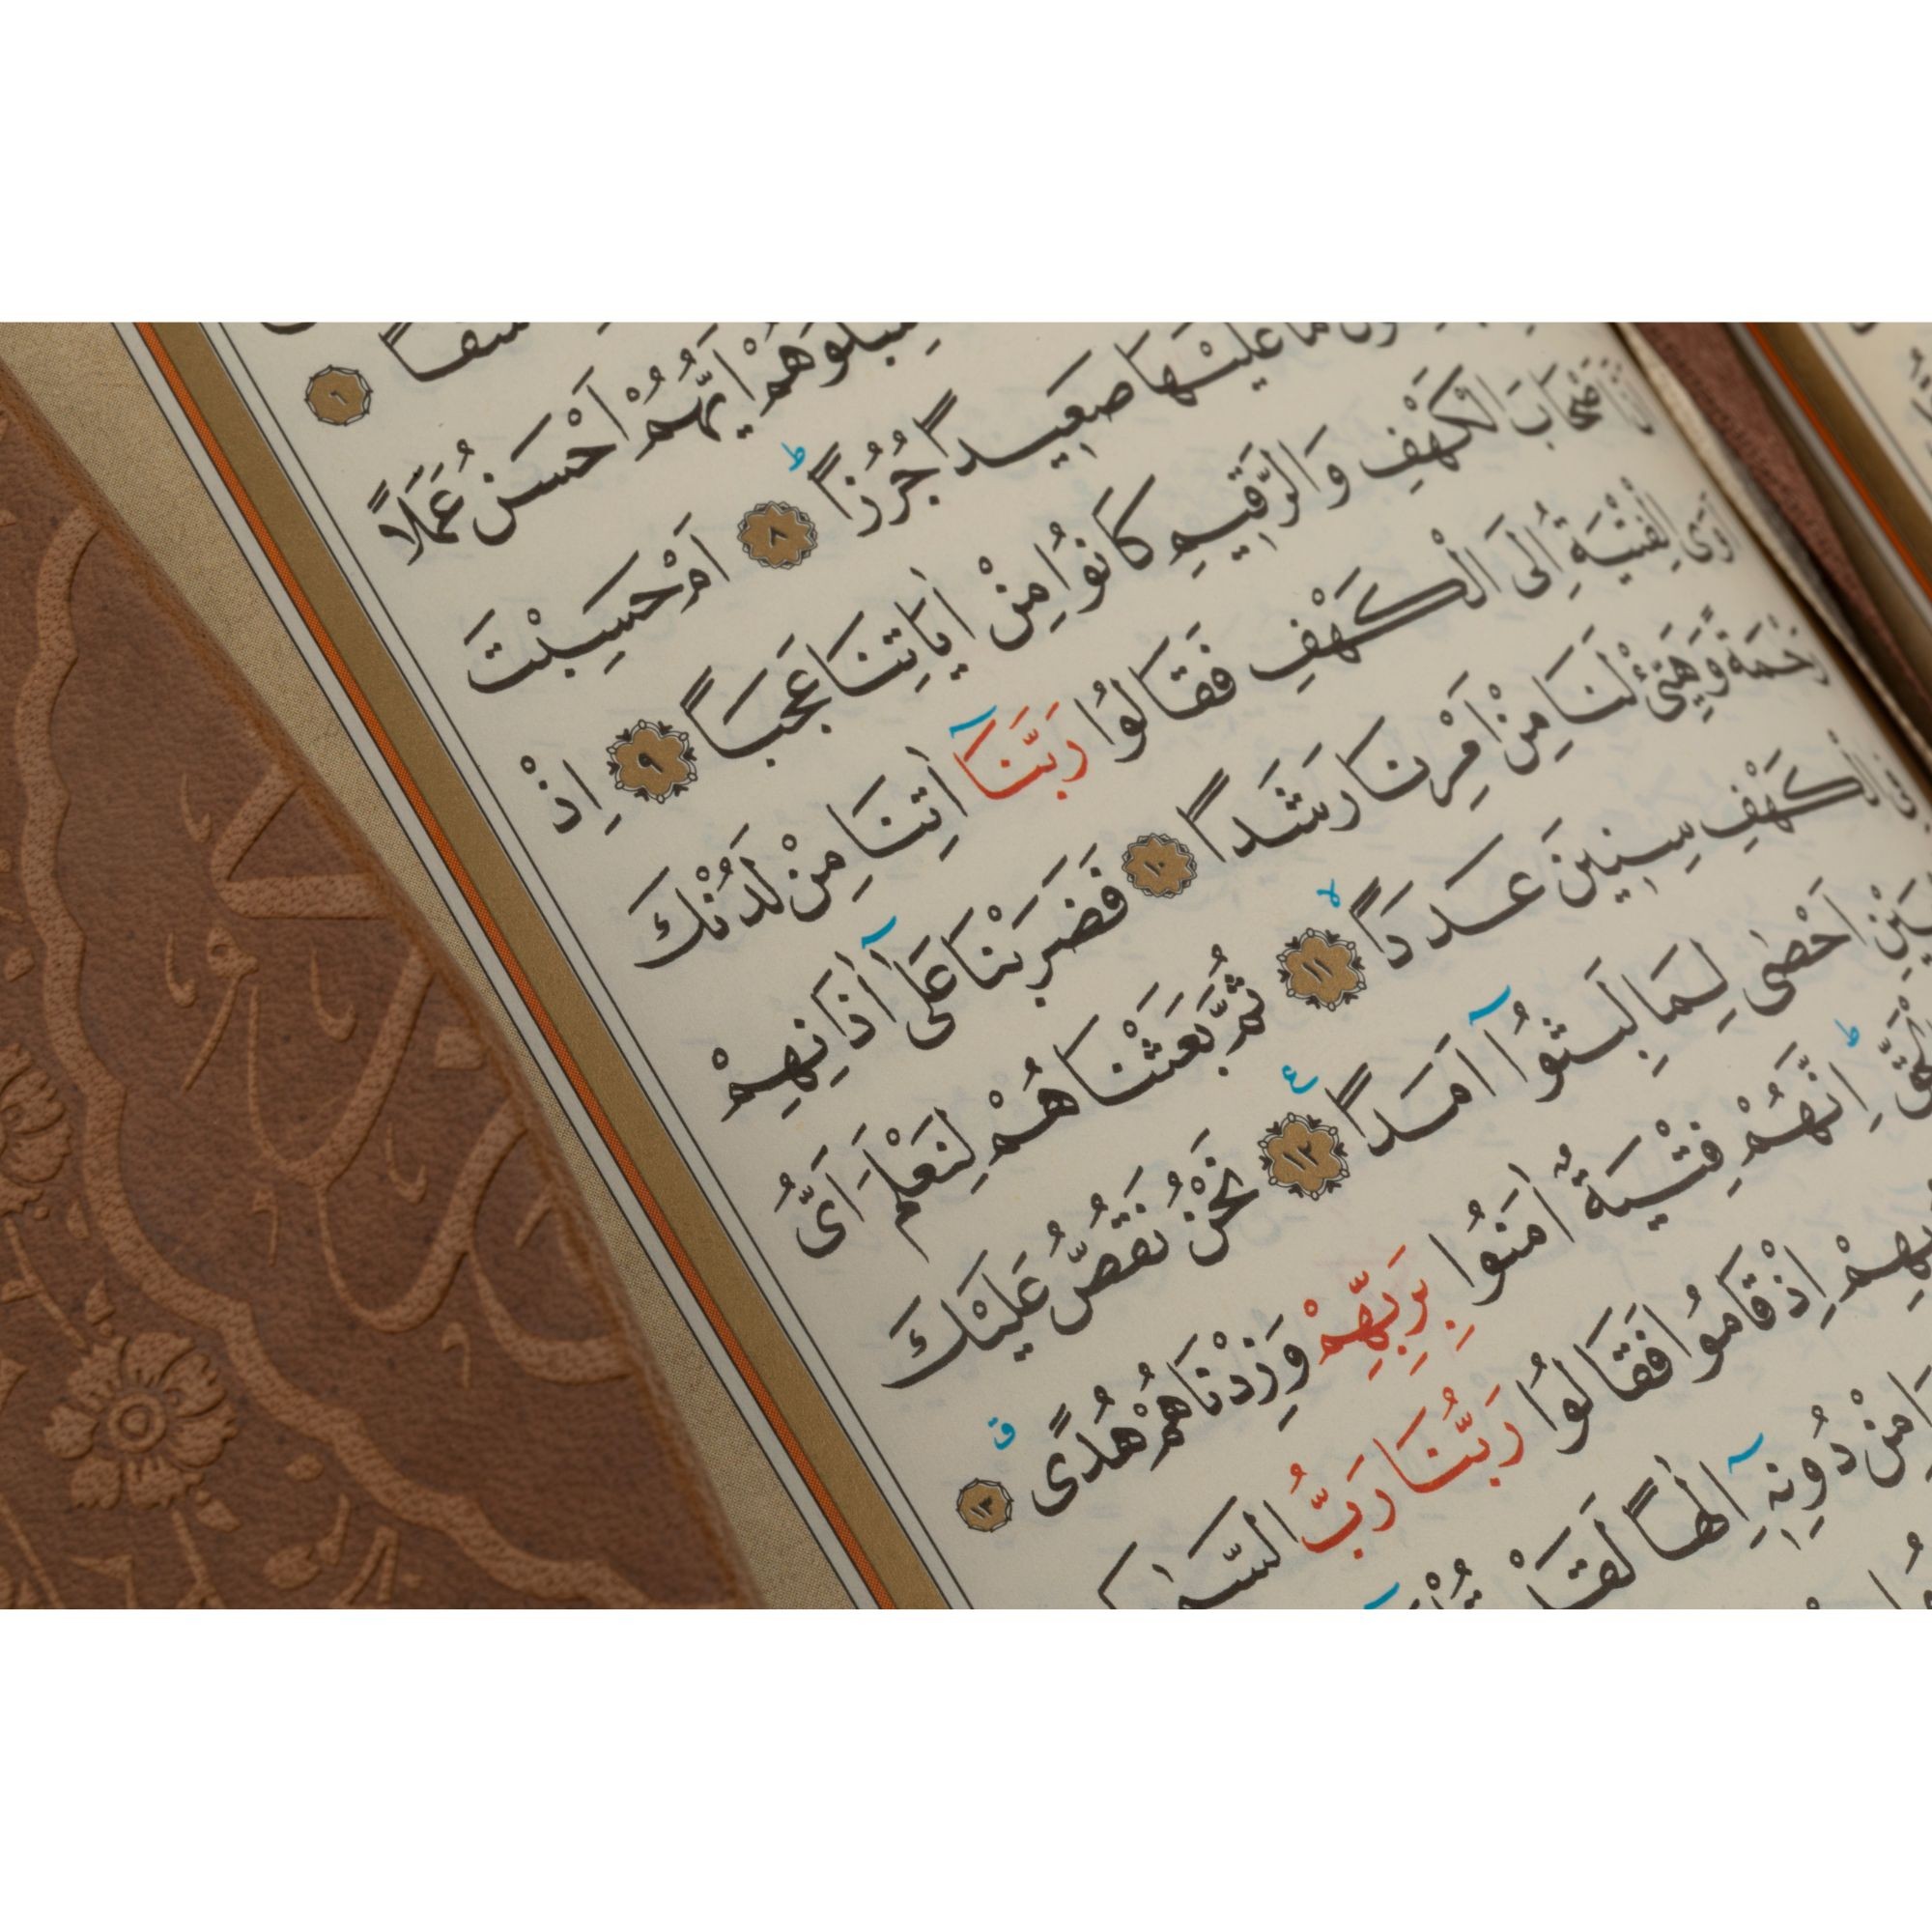 سفاً ٦
لِنَبْلُوَهُمْ اَيُّهُمْ اَحْسَنُ عَمَلاً
مَا عَلَيْهَا صَعِيداً جُرُزاًۜ ٨ اَمْ حَسِبْتَ
اَصْحَابَ الْكَهْفِ وَالرَّقِيمِ كَانُوا مِنْ اٰيَاتِنَا عَجَباً ٩ اِذْ
اَوَى الْفِتْيَةُ اِلَى الْكَهْفِ فَقَالُوا رَبَّنَٓا اٰتِنَا مِنْ لَدُنْكَ
رَحْمَةً وَهَيِّئْ لَنَا مِنْ اَمْرِنَا رَشَداً ١٠ فَضَرَبْنَا عَلٰٓى اٰذَانِهِمْ
فِي الْكَهْفِ سِنِينَ عَدَداًۙ ١١ ثُمَّ بَعَثْنَاهُمْ لِنَعْلَمَ اَيُّ
اَحْصٰى لِمَا لَبِثُٓوا اَمَداً۟ ١٢ نَحْنُ نَقُصُّ عَلَيْكَ
اِنَّهُمْ فِتْيَةٌ اٰمَنُوا بِرَبِّهِمْ وَزِدْنَاهُمْ هُدًىۗ ١٣
اِذْ قَامُوا فَقَالُوا رَبُّنَا رَبُّ
مِنْ دُونِهٖٓ اِلٰهاً لَقَدْ